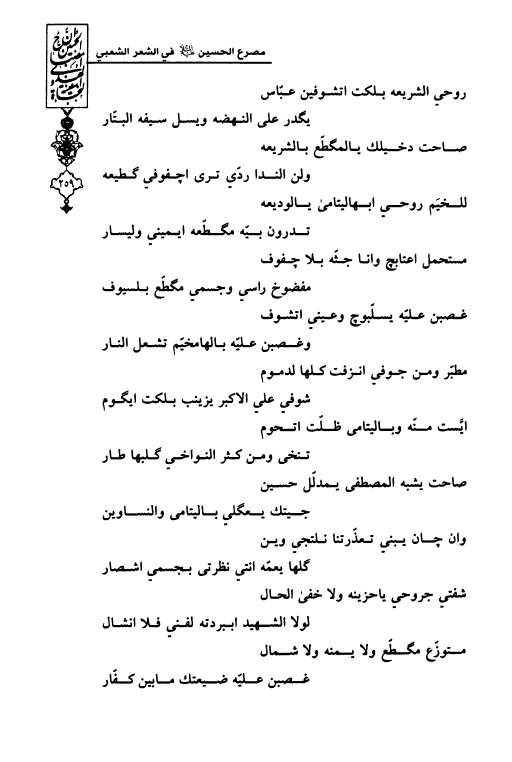 مصرع الحسين ﷺ في الشعر الشعبي
٢٥٩
روحي الشريعه بـلكت اتشـوفين عبّاس
يگدر على النـهضه ويسـل سيفه البتّار
صـاحت دخيلك يـالمگطّع بـالشريعه
ولن النـدا ردّي تـرى اچـفوفي گـطيعه
للـخيَم روحـي ابـهاليتامىٰ يـالوديعه
تـدرون بـيّه مگـطّعه ايـميني وليسار
مستحمل اعتابچ وانـا جثّه بـلا چـفوف
مفضوخ راسي وجسمي مگطّع بـلسيوف
غـصبن عـليّه يسلّبوچ وعـيني اتشـوف
وغـصبن عـليّه بـالهامخيّم تـشعل النار
مطبّر ومـن جـوفي انـزفت كـلها لدموم
شوفي علي الاكبر يزينب بـلكت ايگـوم
ايّست مـنّه وبـاليتامى ظـلّت اتـحوم
تـنخى ومـن كـثر النـواخـي گـلبها طـار
صاحت يشبه المصطفى يـمدلّل حسـين
جـيتك يـعگلي بـاليتامى والنسـاوين
وان چـان يـبني تـعذّرتنا نـلتجي ويـن
گلها يعمّه انتي نظرتى بـجسمي اشـصار
شفتي جروحي ياحزينه ولا خفىٰ الحـال
لولا الشـهيد ابـبردته لفـني فـلا انشـال
مـتوزّع مگـطّع ولا يـمنه ولا شـمال
غـصبن عـليّه ضـيعتك مـابين كـفّار